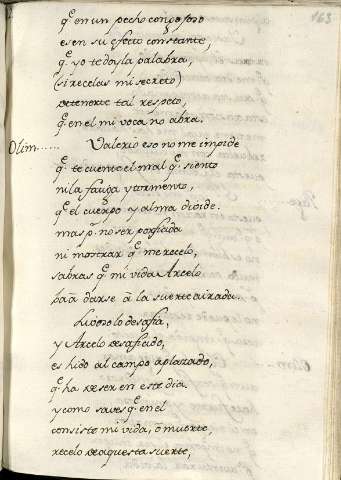 163
q̃ en un pecho congoxoso
es en su efecto constante,
q̃ yo te doy la palabra,
(si recelas mi secreto)
de tenerte tal respeto,
q̃ en el mi voca no abra.
Olim...... Valerio eso no me impide
q̃ te cuente el mal q̃ siento
ni la fatiga y tormento,
q̃ el cuerpo y alma divide.
mas p̃. no ser porfiada
ni mostrar q̃ me recelo,
sabras q̃ mi vida Arcelo
para darse a la suerte airada.
lo desafia,
y Arcelo desafiado,
es hido al campo aplazado,
q̃ ha de ser en este dia.
y como saves q̃ en el
consiste mi vida, o muerte,
recelo de aquesta suerte,